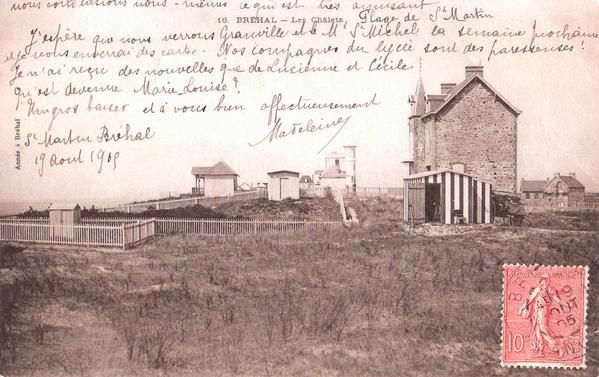 nous considérons nous-mêmes ce qui est très amusant
16. BRÉHAL — Les Châlets, Plage de St Martin
J'espère que nous verrons Granville et le Mt St Michel la semaine prochaine
et je vous enverrai des cartes - Nos compagnes du lycée sont des paresseuses!
Je n'ai reçu des nouvelles que de Lucienne et Cécile
Qu'est devenue Marie Louise?
Un gros baiser et à vous bien affectueusement
Madeleine
St Martin Bréhal
19 Août 1905
Année à Bréhal
10c